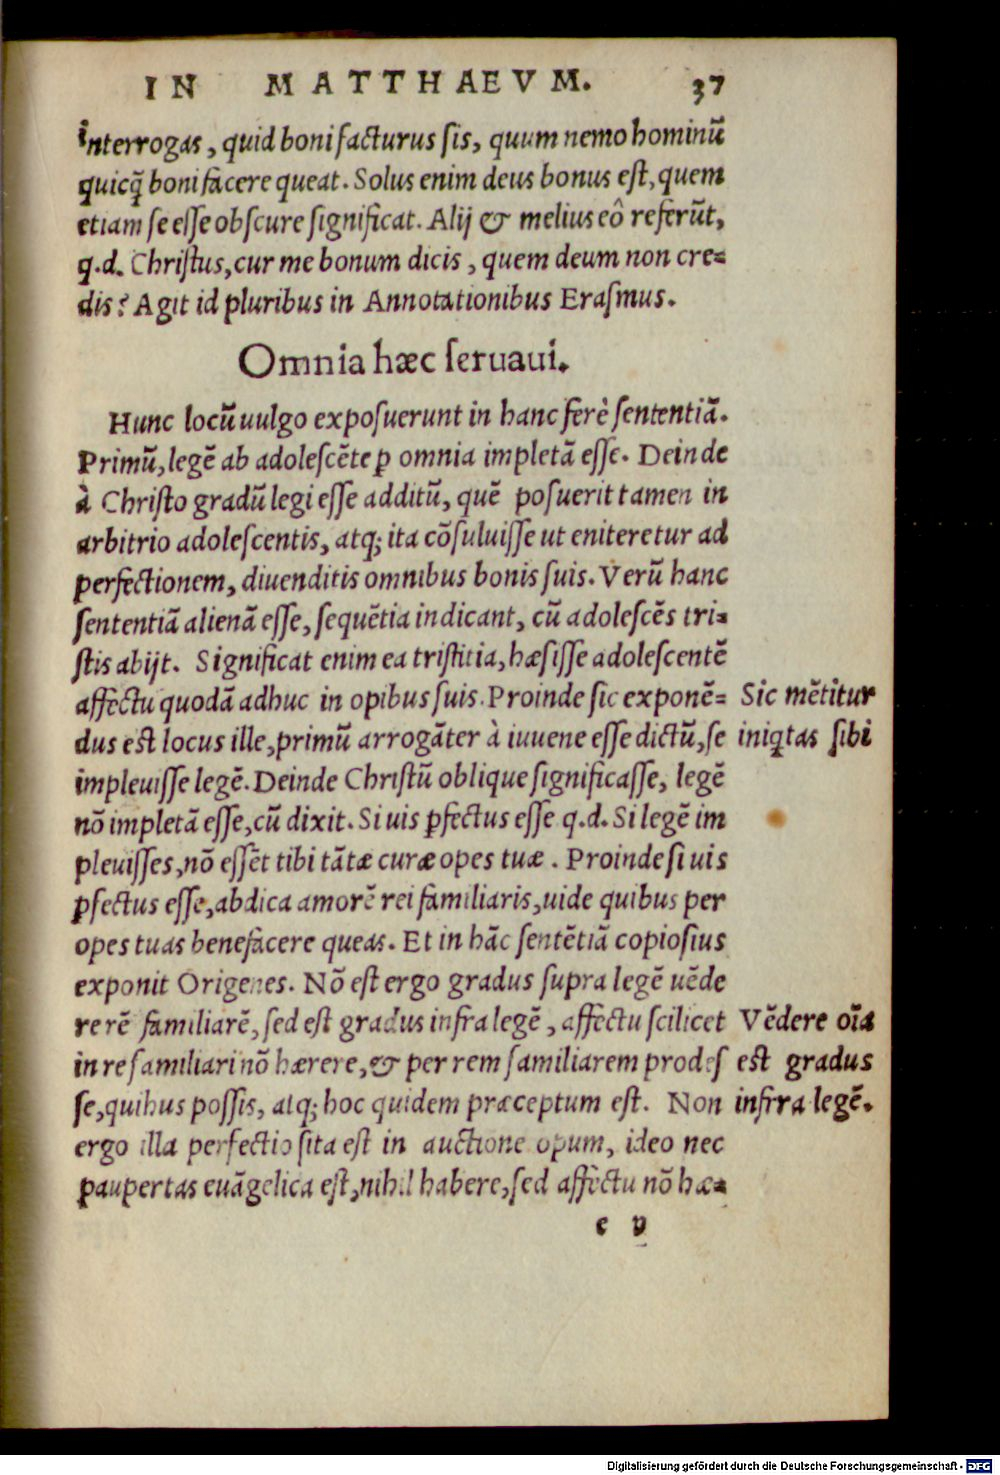 IN MATTHAEVM. 37
interrogas, quid boni facturus sis, quum nemo hominū
quicq̄ boni facere queat. Solus enim deus bonus est, quem
etiam se esse obscure significat. Alij & melius eô referūt,
q.d. Christus, cur me bonum dicis, quem deum non cre-
dis? Agit id pluribus in Annotationibus Erasmus.
Omnia hæc seruaui.
Hunc locū uulgo exposuerunt in hanc ferè sententiā.
Primū, legē ab adolescēte ꝑ omnia impletā esse. Deinde
à Christo gradū legi esse additū, quē posuerit tamen in
arbitrio adolescentis, atq; ita cōsuluisse ut eniteretur ad
perfectionem, diuenditis omnibus bonis suis. Verū hanc
sententiā alienā esse, sequētia indicant, cū adolescēs tri-
stis abijt. Significat enim ea tristitia, hæsisse adolescentē
affectu quodā adhuc in opibus suis. Proinde sic exponē-
Sic mētitur
dus est locus ille, primū arrogāter à iuuene esse dictū, se
iniq̄tas sibi
impleuisse legē. Deinde Christū oblique significasse, legē
nō impletā esse, cū dixit. Si uis ꝑfectus esse q.d. Si legē im
pleuisses, nō essēt tibi tātæ curæ opes tuæ. Proinde si uis
ꝑfectus esse, abdica amorē rei familiaris, uide quibus per
opes tuas benefacere queas. Et in hāc sentētiā copiosius
exponit Origenes. Nō est ergo gradus supra legē uēde
re rē familiarē, sed est gradus infra legē, affectu scilicet
Vēdere oīa
in re familiari nō hærere, & per rem familiarem prodes
est gradus
se, quibus possis, atq; hoc quidem præceptum est. Non
infra legē.
ergo illa perfectio sita est in auctione opum, ideo nec
paupertas euāgelica est, nihil habere, sed affectu nō hæ-
e v
Digitalisierung gefördert durch die Deutsche Forschungsgemeinschaft - DFG